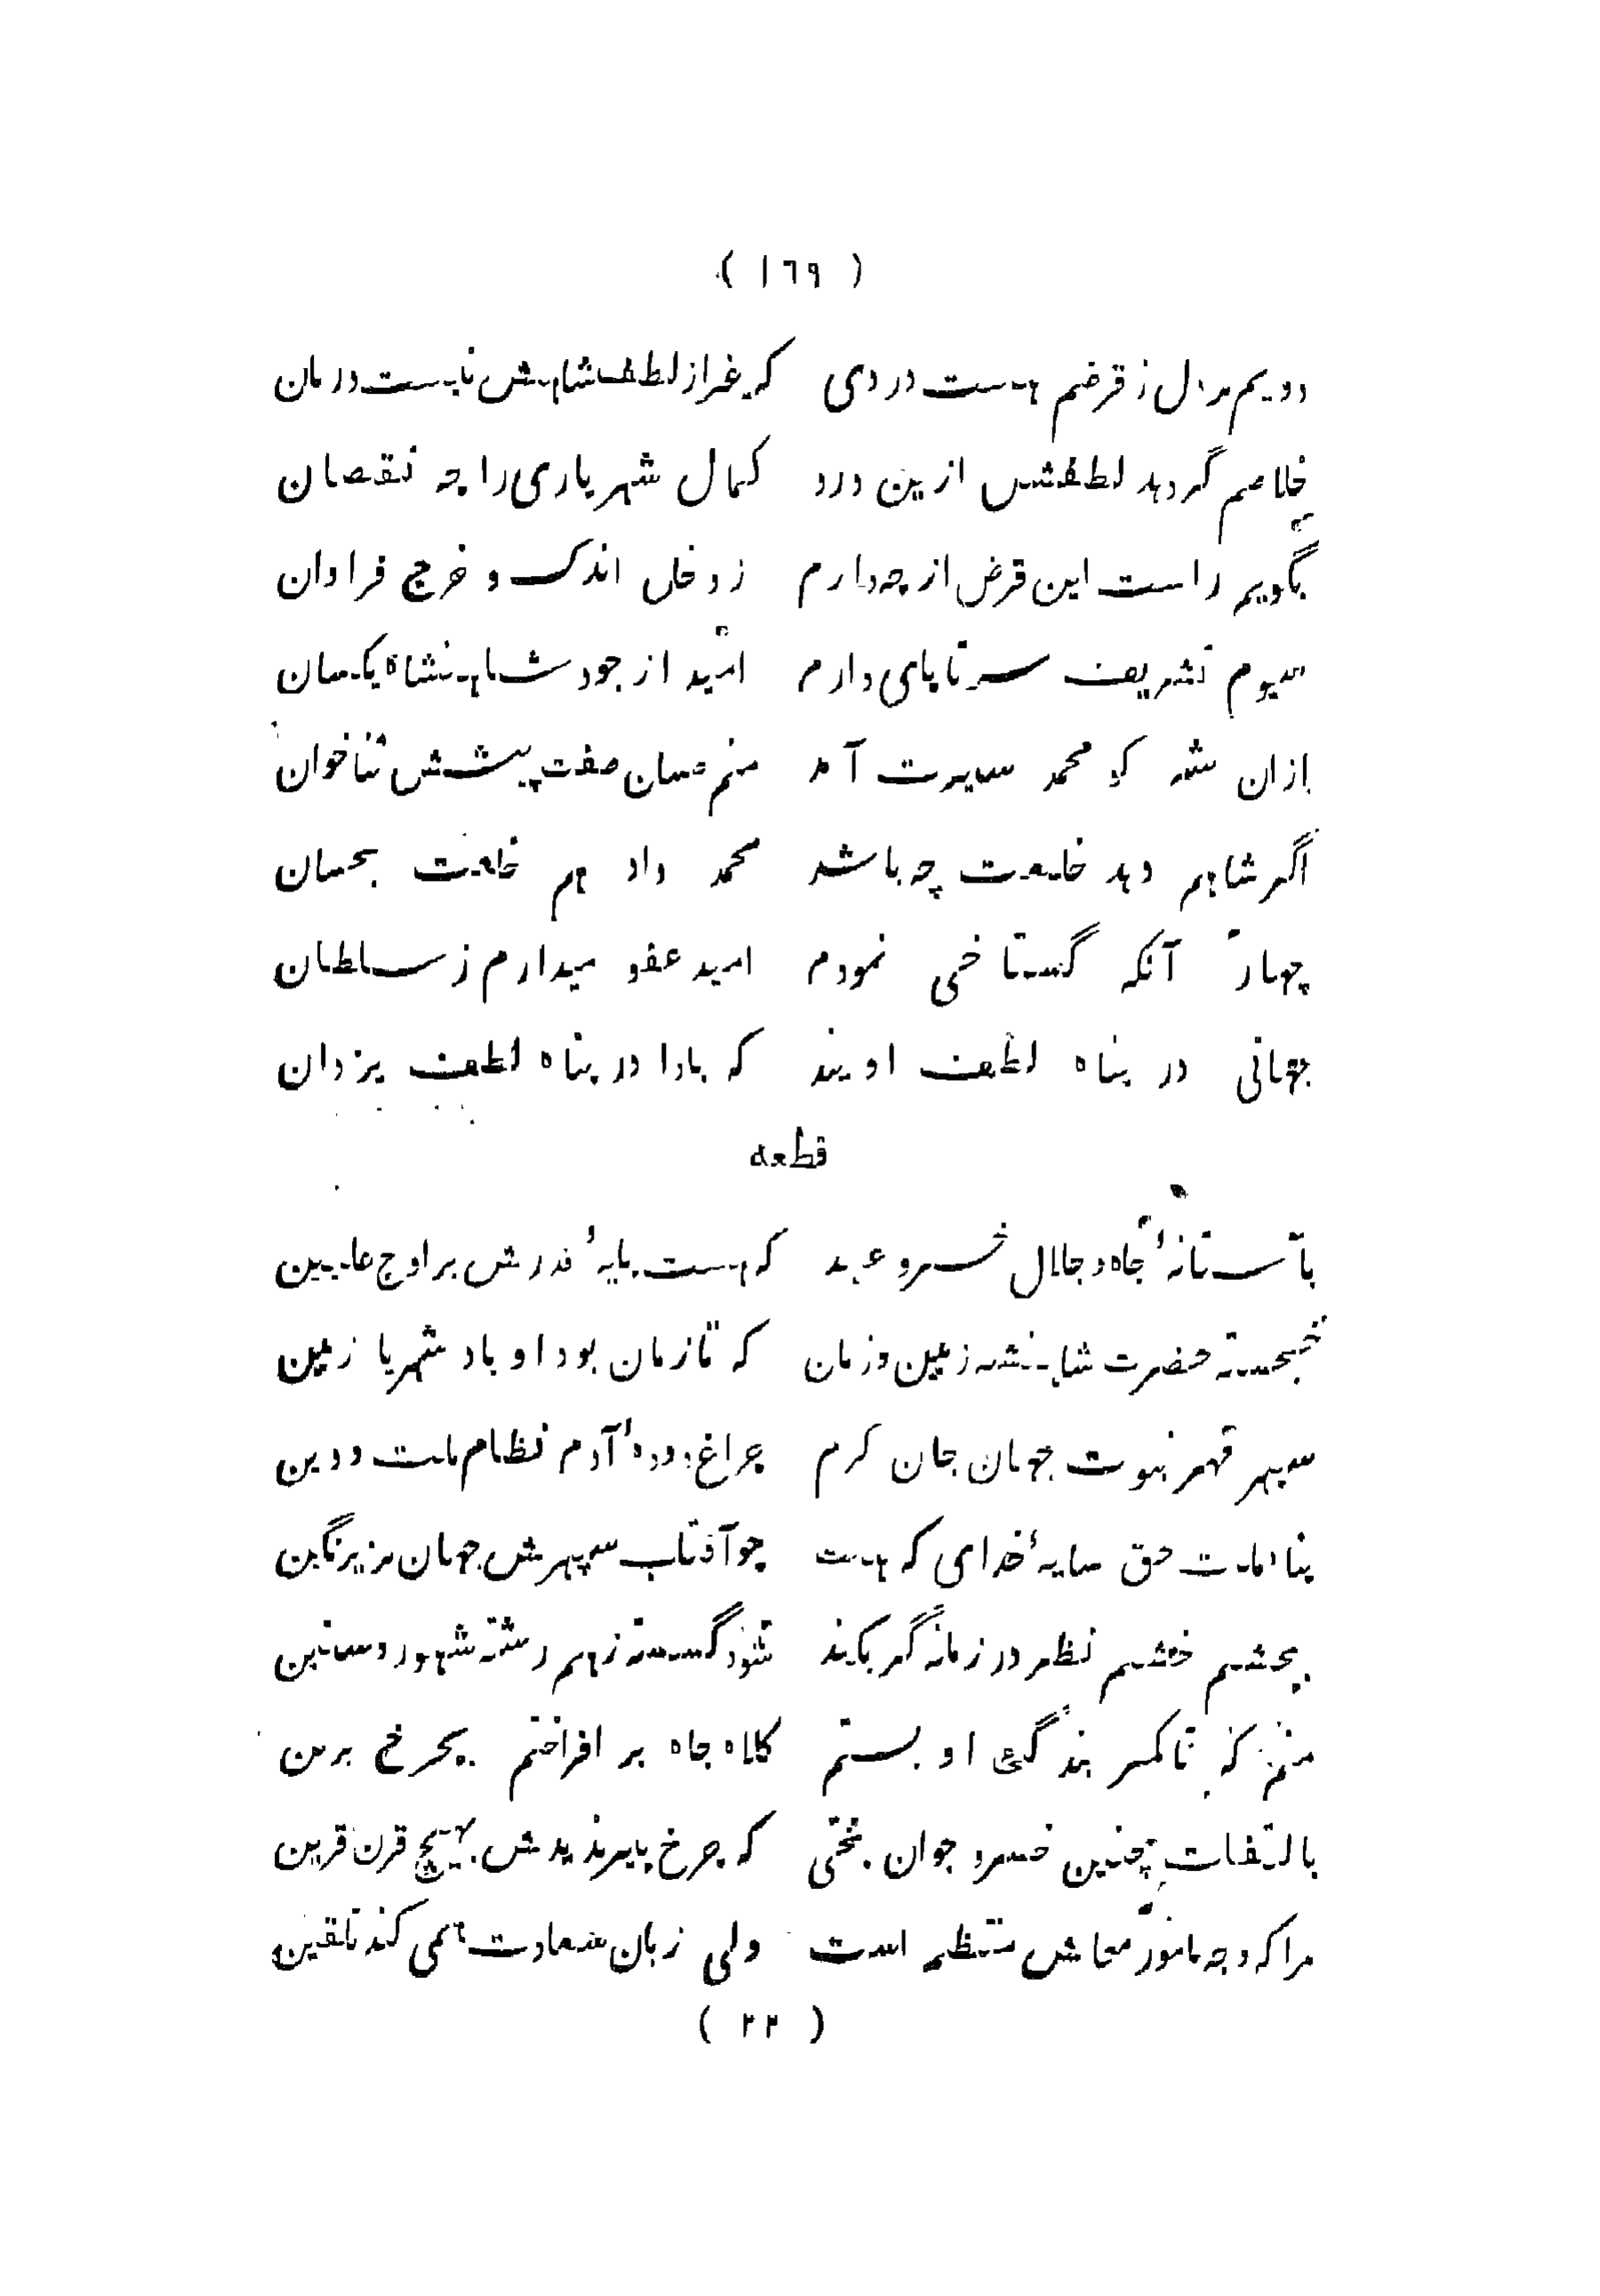 ( ١٦٩ )
دویم بدل ز قرضم هست دردی که غیر از لطف شاهش نیست درمان
خلاصم گر دهد لطفش ازین درد کمال شهریاری را چه نقصان
بگویم راست این قرض از چه دارم ز دخل اندک و خرج فراوان
سیوم تشریف سر تا پای دارم امید از جود شاهنشاه یکسان
ازان شه کو محمد سیرت آمد منم حسان صفت پیشش ثنا خوان
اگر شاهم دهد خلعت چه باشد محمد داد هم خلعت بحسان
چهارم آنکه گستاخی نمودم امید عفو میدارم ز سلطان
جهانی در پناه لطف اویند که بادا در پناه لطف یزدان
قطعه
بآستانهٔ جاه و جلال خسرو عهد که هست پایهٔ قدرش بر اوج علیین
خجسته حضرت شاهنشه زمین و زمان که تا زمان بود او باد شهریار زمین
سپهر قهر نبوت جهان جان کرم چراغ دودهٔ آدم نظام ملت و دین
پناه ملت حق سایهٔ خدای که هست چو آفتاب سپهرش جهان بزیر نگین
بچشم خشم نظر در زمانه گر بکند شود گسسته ز هم رشته شهور و سنین
منم که تا کمر بندگی او بستم کلاه جاه بر افراختم بچرخ برین
بالتفات چنین خسرو جوان بختی که چرخ پیر ندیدش بهیچ قرن قرین
مرا که وجه معاش منتظم است ولی زبان سعادت همی کند تلقین
( ٢٢ )